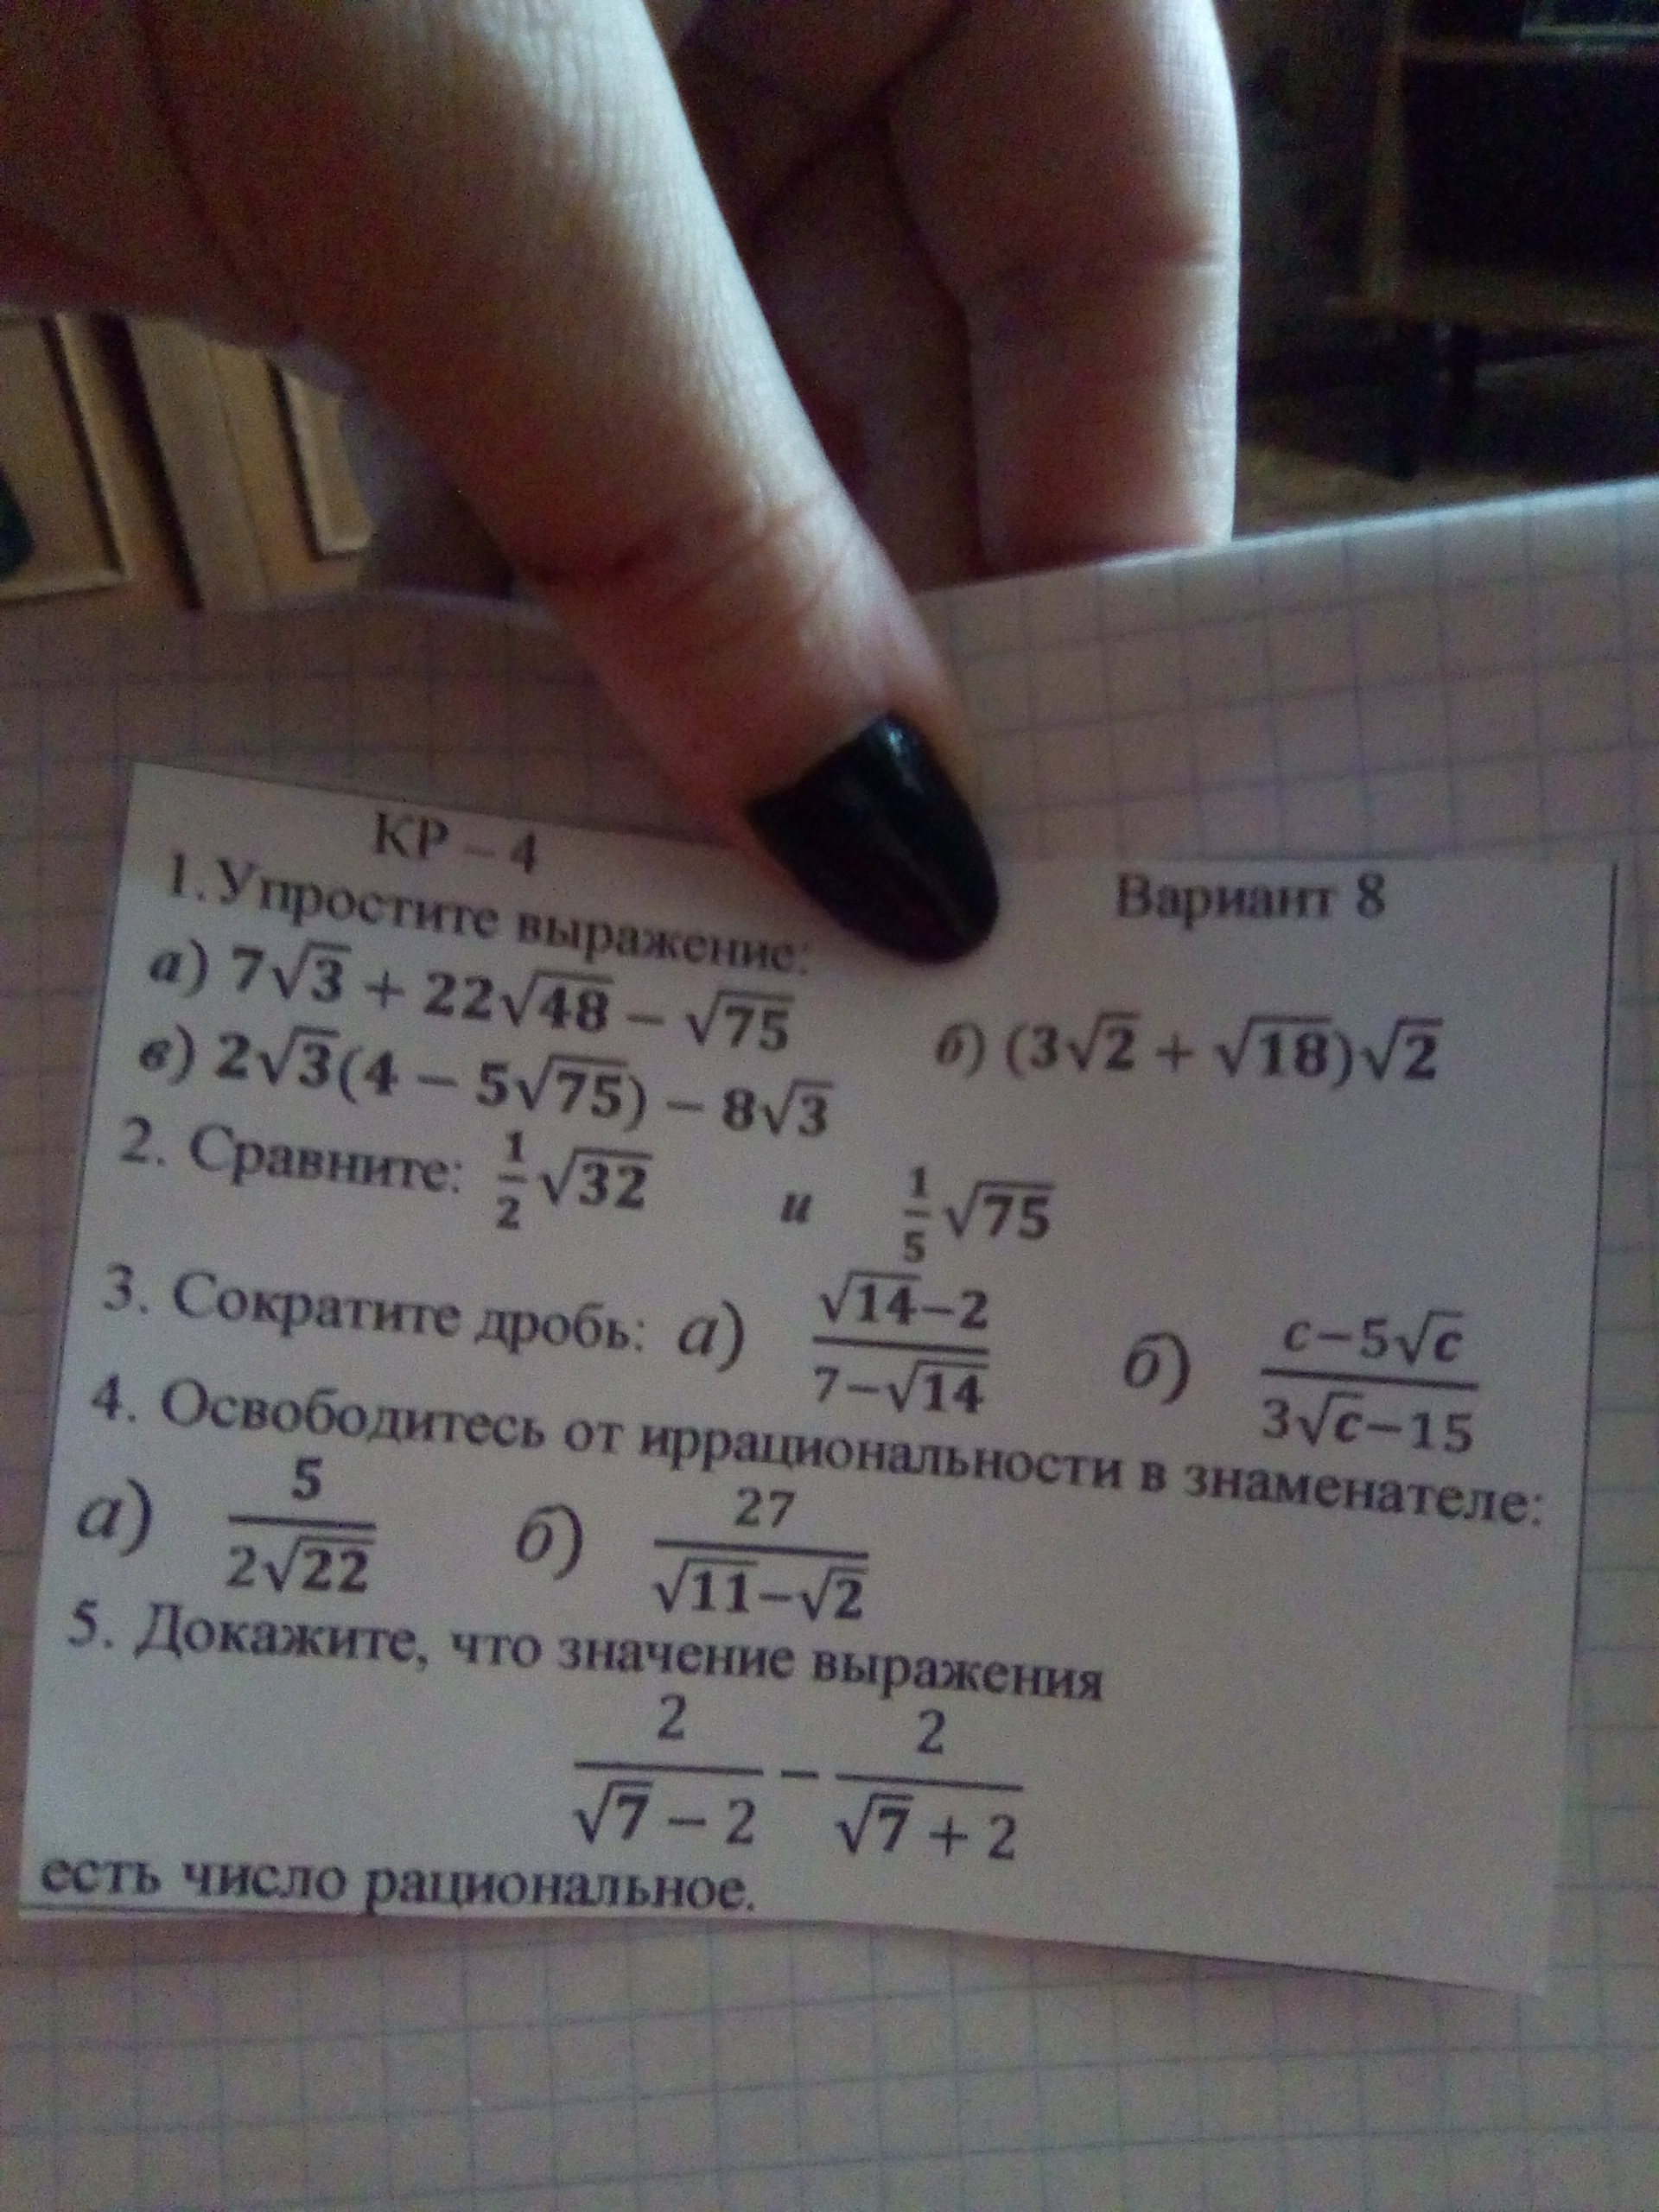 КР – 4 Вариант 8
1.Упростите выражение:
а) 7√3 + 22√48 − √75 б) (3√2 + √18)√2
в) 2√3(4 − 5√75) − 8√3
2. Сравните: 1/2 √32 и 1/5 √75
3. Сократите дробь: а) (√14−2)/(7−√14) б) (c−5√c)/(3√c−15)
4. Освободитесь от иррациональности в знаменателе:
а) 5/(2√22) б) 27/(√11−√2)
5. Докажите, что значение выражения
2/(√7 − 2) − 2/(√7 + 2)
есть число рациональное.